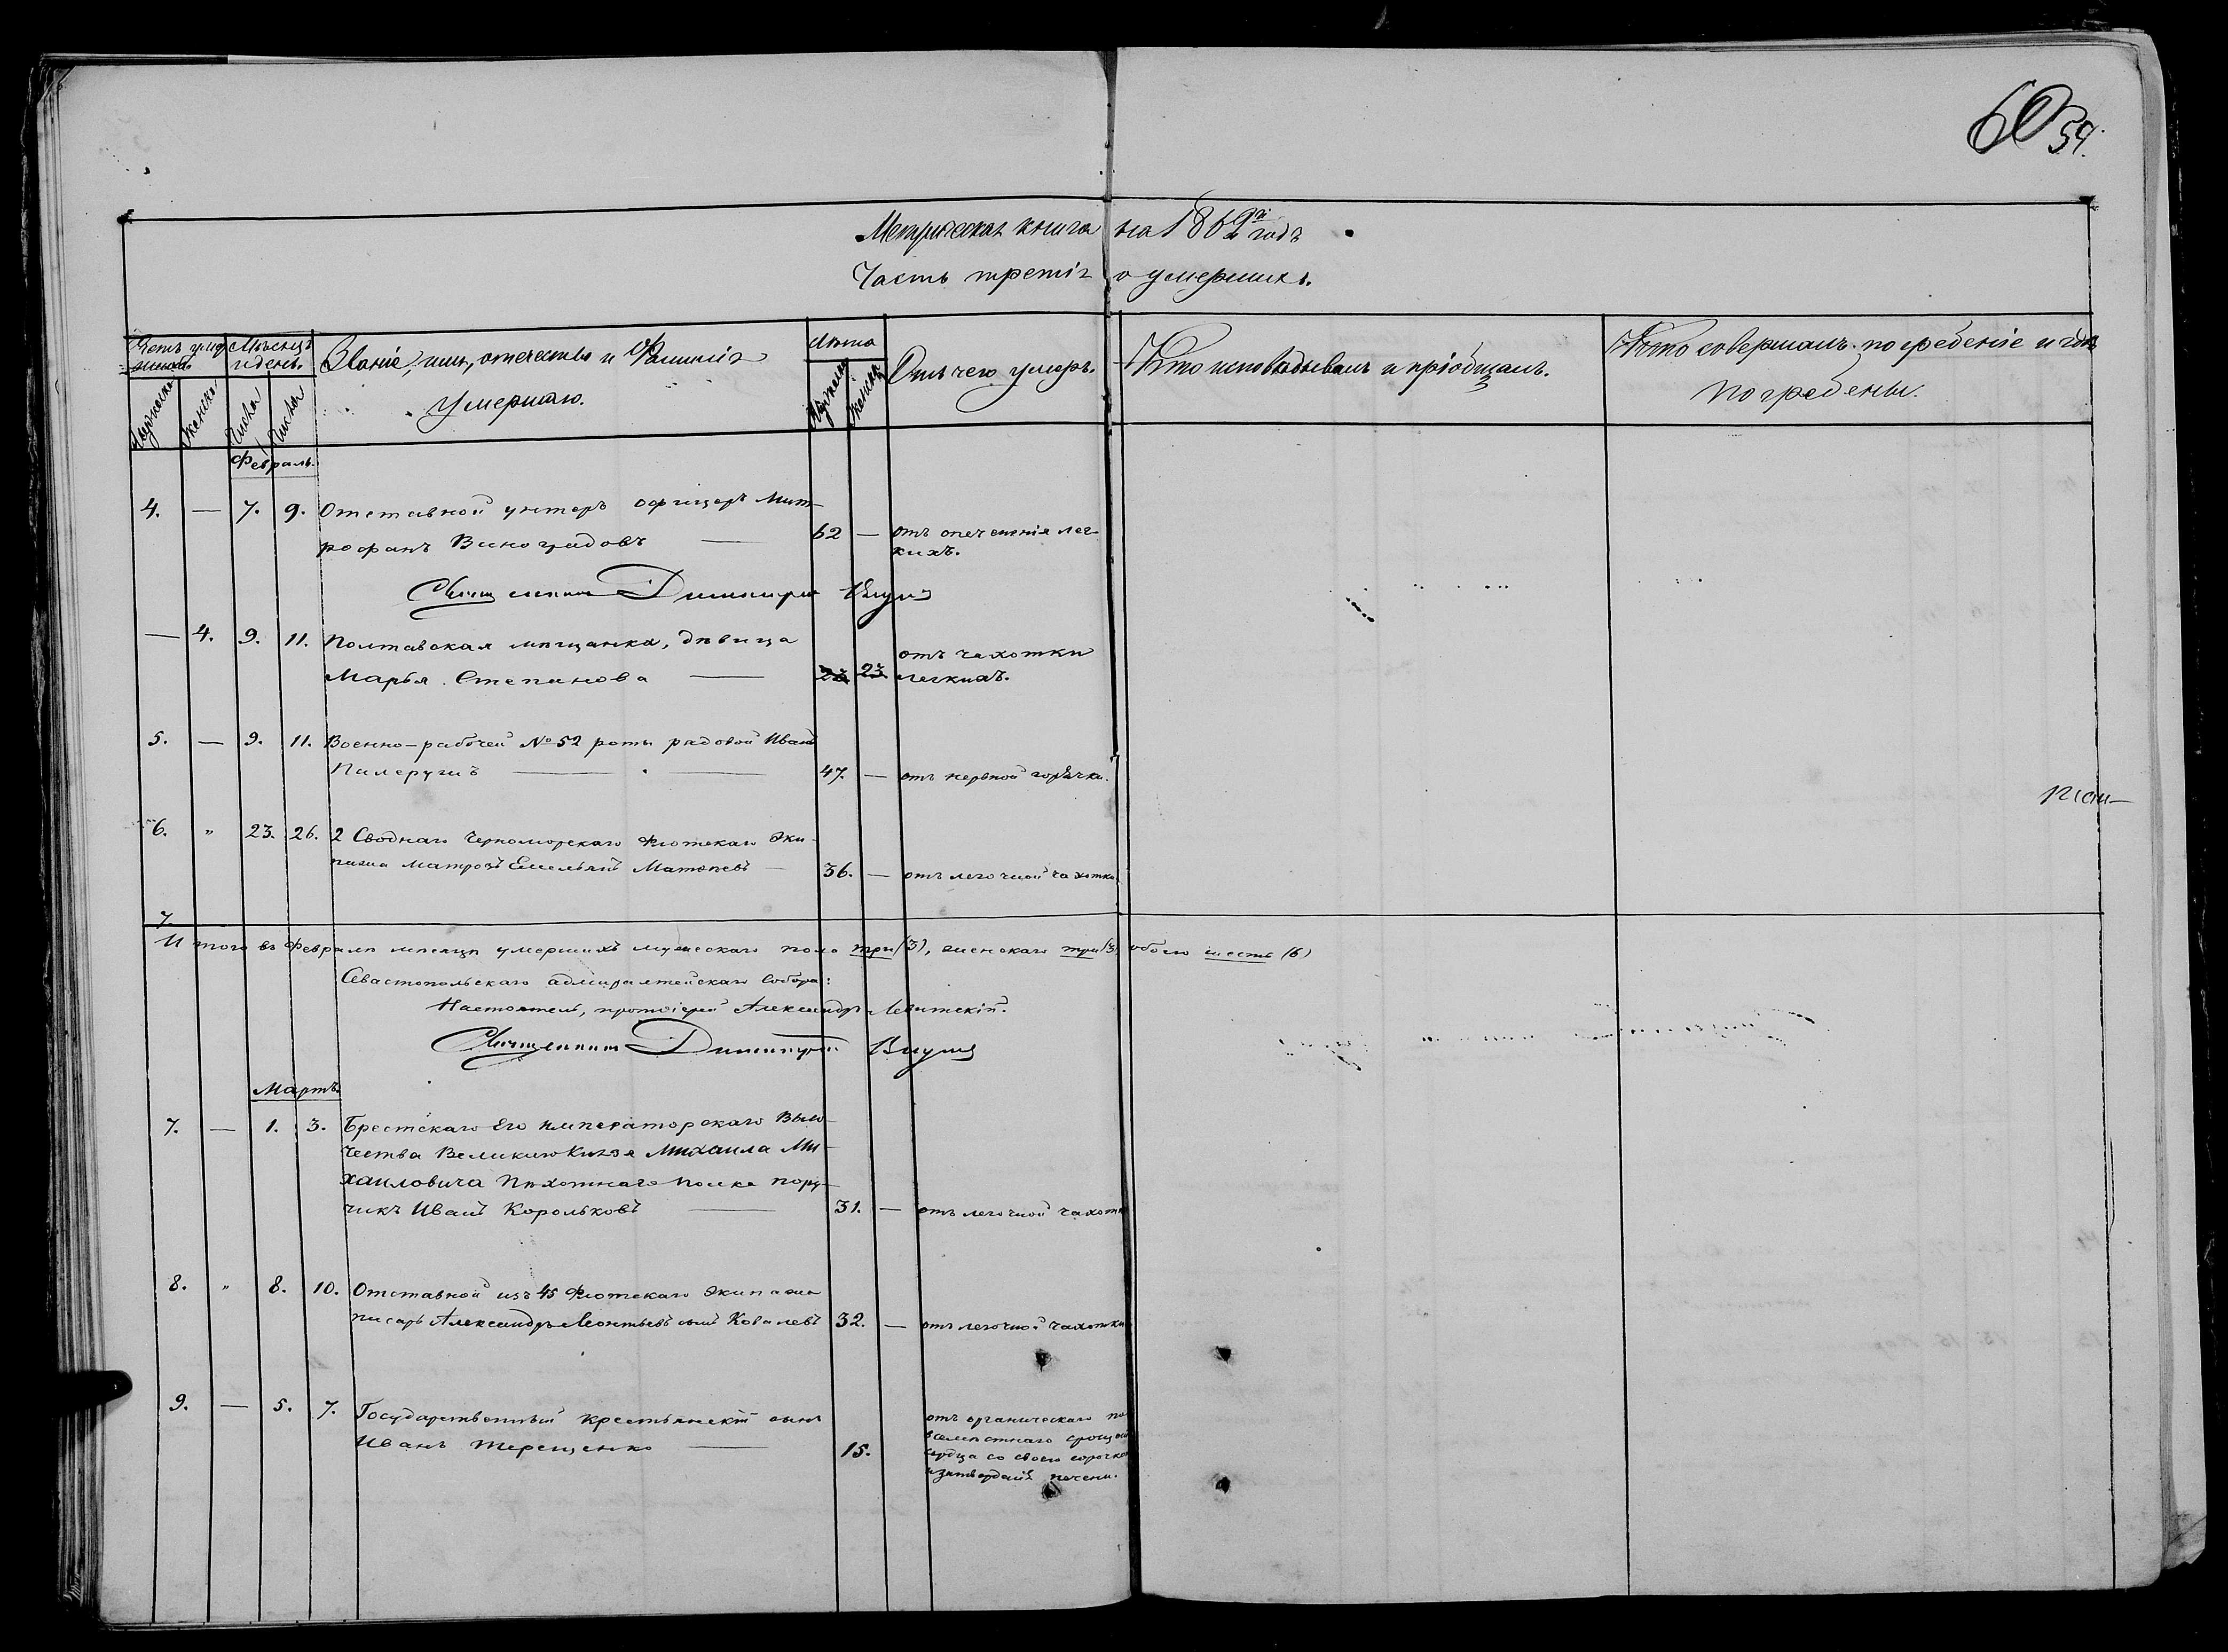 60 59.
Метрическая книга на 1862й годъ.
Часть третія о умершихъ.
Счетъ умершихъ. Мѣсяцъ и день. Званіе, имя, отечество и Фамилія умершаго. Лѣта Отъ чего умеръ. Кто исповѣдывалъ и пріобщалъ. Кто совершалъ погребеніе и гдѣ погребены.
Мужеска Женска Числа Числа Мужеска Женска
Февраль.
4. — 7. 9. Отставной унтеръ офицеръ Мит-
рофанъ Виноградовъ — 62 — отъ опеченія лег-
кихъ.
Священникъ Димитрій
— 4. 9. 11. Полтавская мѣщанка, дѣвица
Марья Степанова — 23 23 отъ чахотки
легкихъ.
5. — 9. 11. Военно-рабочей № 52 роты рядовой Иванъ
47. — отъ нервной горячки.
6. " 23. 26. 2 Своднаго Черноморскаго Флотскаго Эки-
пажа матрозъ Емельянъ Матвѣевъ — 36. — отъ легочной чахотки
7
Итого въ Февралѣ мѣсяцѣ умершихъ мужескаго пола три (3), женскаго три (3) обоего шесть (6)
Севастопольскаго адмиралтейскаго Собора:
Настоятель, протоіерей Александръ Левитскій.
Священникъ Димитрій
Мартъ.
7. — 1. 3. Брестскаго Его Императорскаго Высо-
чества Великаго Князя Михаила Ми-
хаиловича Пѣхотнаго Полка пору-
чикъ Иванъ Корольковъ — 31. — отъ легочной чахотк
8. " 8. 10. Отставной изъ 45 Флотскаго Экипажа
писарь Александръ Леонтьевъ сынъ Ковалевъ 32. — отъ легочной чахотки
9. — 5. 7. Государственный крестьянскій сынъ
Иванъ Терещенко — 15.
отъ органическаго по
сердца со своею сорочкою
печени.